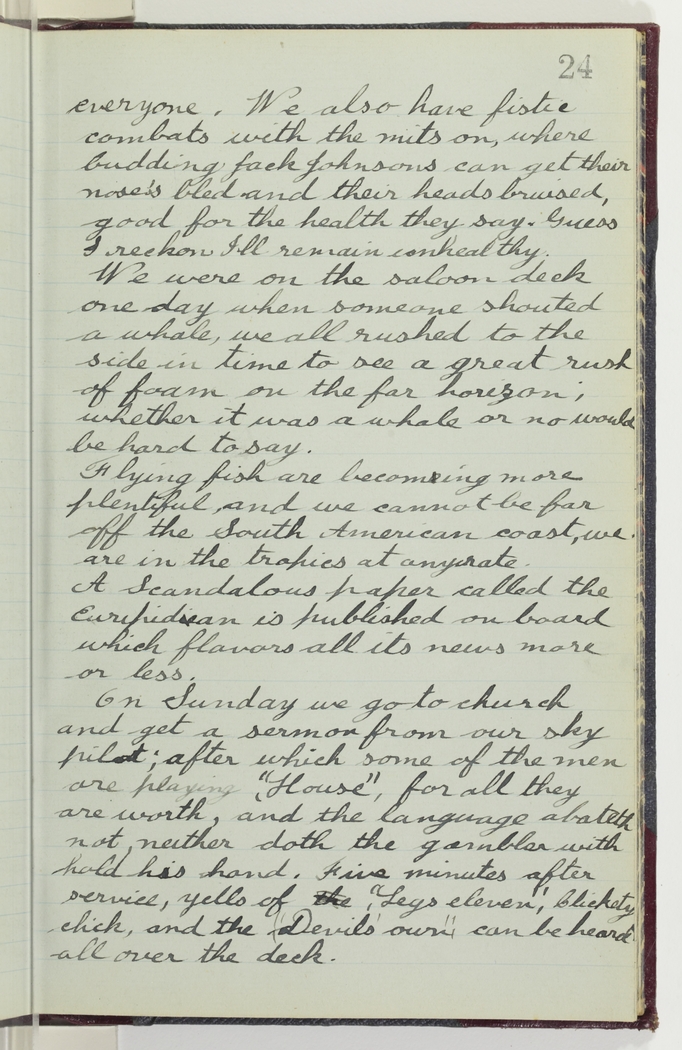 24
everyone. We also have fistic
combats with the mits on, where
budding Jack Johnsons can get their
nose's bled and their heads bruised,
good for the health they say. Guess
I reckon I'll remain unhealthy.
We were on the saloon deck
one day when someone shouted
a whale, we all rushed to the
side in time to see a great rush
of foam on the far horizon;
whether it was a whale or no would
be hard to say.
Flying fish are becoming more
plentiful, and we cannot be far
off the South American coast, we
are in the tropics at anyrate.
A Scandalous paper called the
Euripidian is published on board
which flavors all its news more
or less.
On Sunday we go to church
and get a sermon from our sky
pilot; after which some of the men
are playing "House", for all they
are worth, and the language abateth
not, neither doth the gambler with
hold his hand. Five minutes after
service, yells of the "Legs eleven", blickety
click, and the "Devils' own" can be heard
all over the deck.